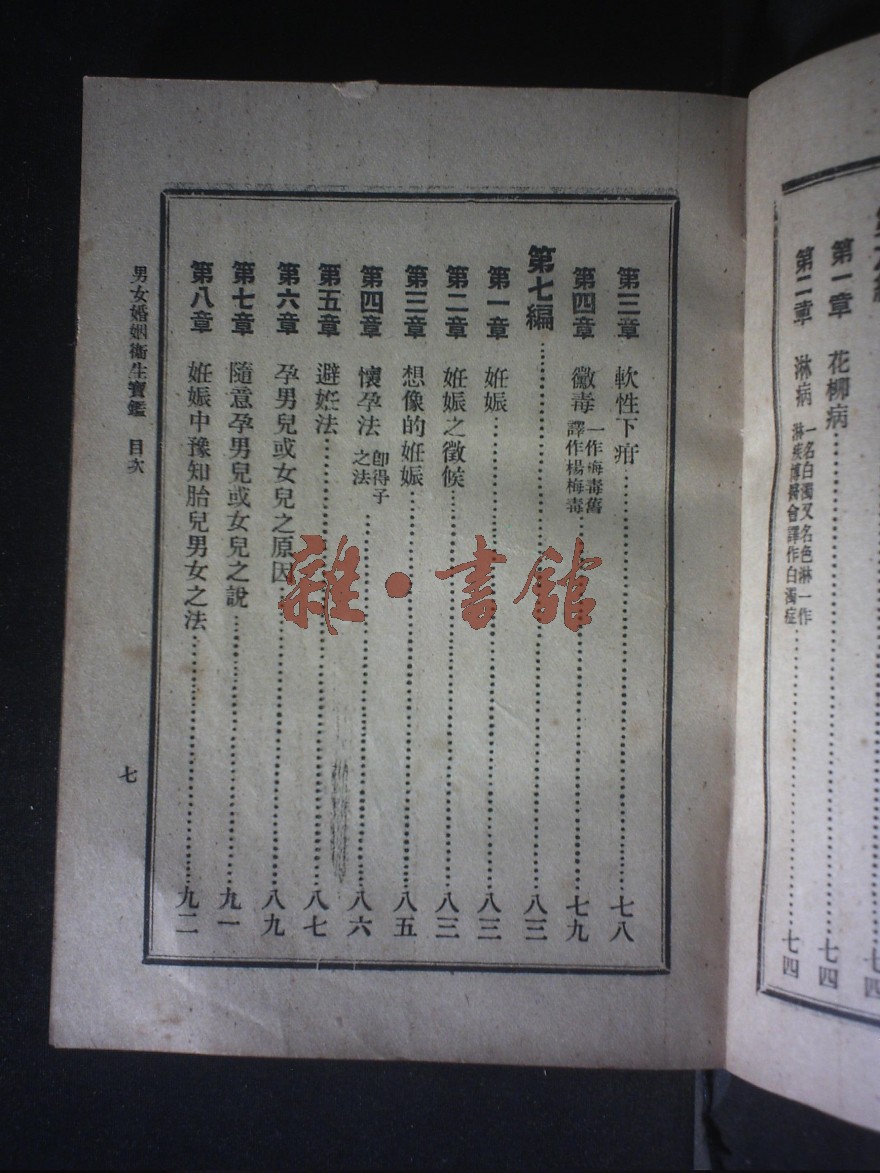 第一章 花柳病……七四
第二章 淋病 一名白濁又名色淋一作淋疾博醫會譯作白濁症……七四
第三章 軟性下疳……七八
第四章 黴毒 一作梅毒舊譯作楊梅毒……七九
第七編……八三
第一章 妊娠……八三
第二章 妊娠之徵候……八三
第三章 想像的妊娠……八五
第四章 懷孕法 卽得子之法……八六
第五章 避妊法……八七
第六章 孕男兒或女兒之原因……八九
第七章 隨意孕男兒或女兒之說……九一
第八章 妊娠中豫知胎兒男女之法……九二
男女婚姻衞生寶鑑 目次
七
雜·書館